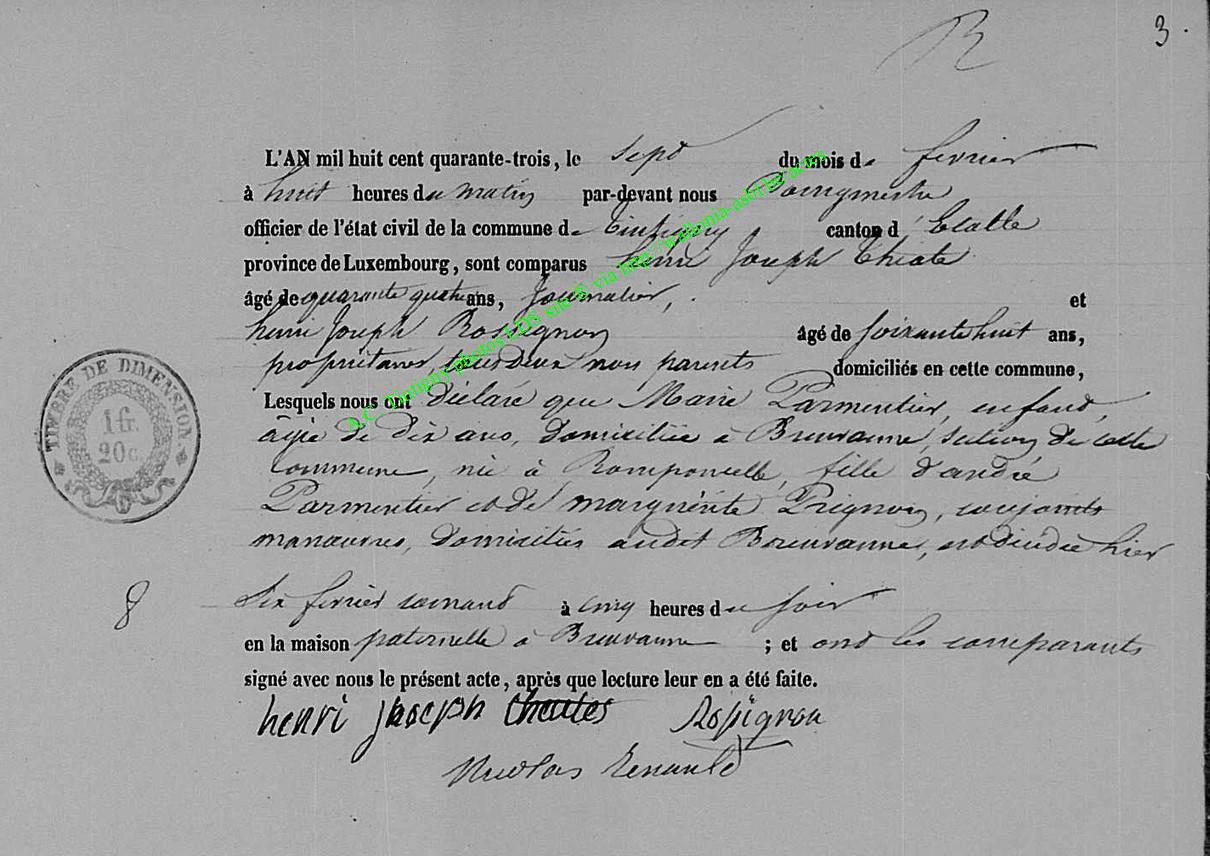 3.
R
L'AN mil huit cent quarante-trois, le sept du mois de fevrier
à huit heures du matin par-devant nous Bourgmestre
officier de l'état civil de la commune de Tintigny, canton d'Etalle
province de Luxembourg, sont comparus henri Joseph Thiote
âgé de quarante quatre ans, Journalier, et
henri Joseph Rossignon âgé de soixante huit ans,
propriétaire, tous deux non parents domiciliés en cette commune,
Lesquels nous ont déclaré que Marie Parmentier, enfant,
agée de dix ans, domiciliée à Breuvanne, section de cette
commune, née à Romponcelle, fille d'andré
Parmentier et de marguérite Prignon, conjoints
manœuvres, domiciliés audit Breuvanne, est décédée hier
six fevrier courant à cinq heures du soir
en la maison paternelle à Breuvanne ; et ont les comparants
signé avec nous le présent acte, après que lecture leur en a été faite.
henri joseph Rossignon
Nicolas Renauld
8
TIMBRE DE DIMENSION
1 fr.
20 c.
A.C. Tintigny photos LDS site & via http://wallonia-asbl.be/actes